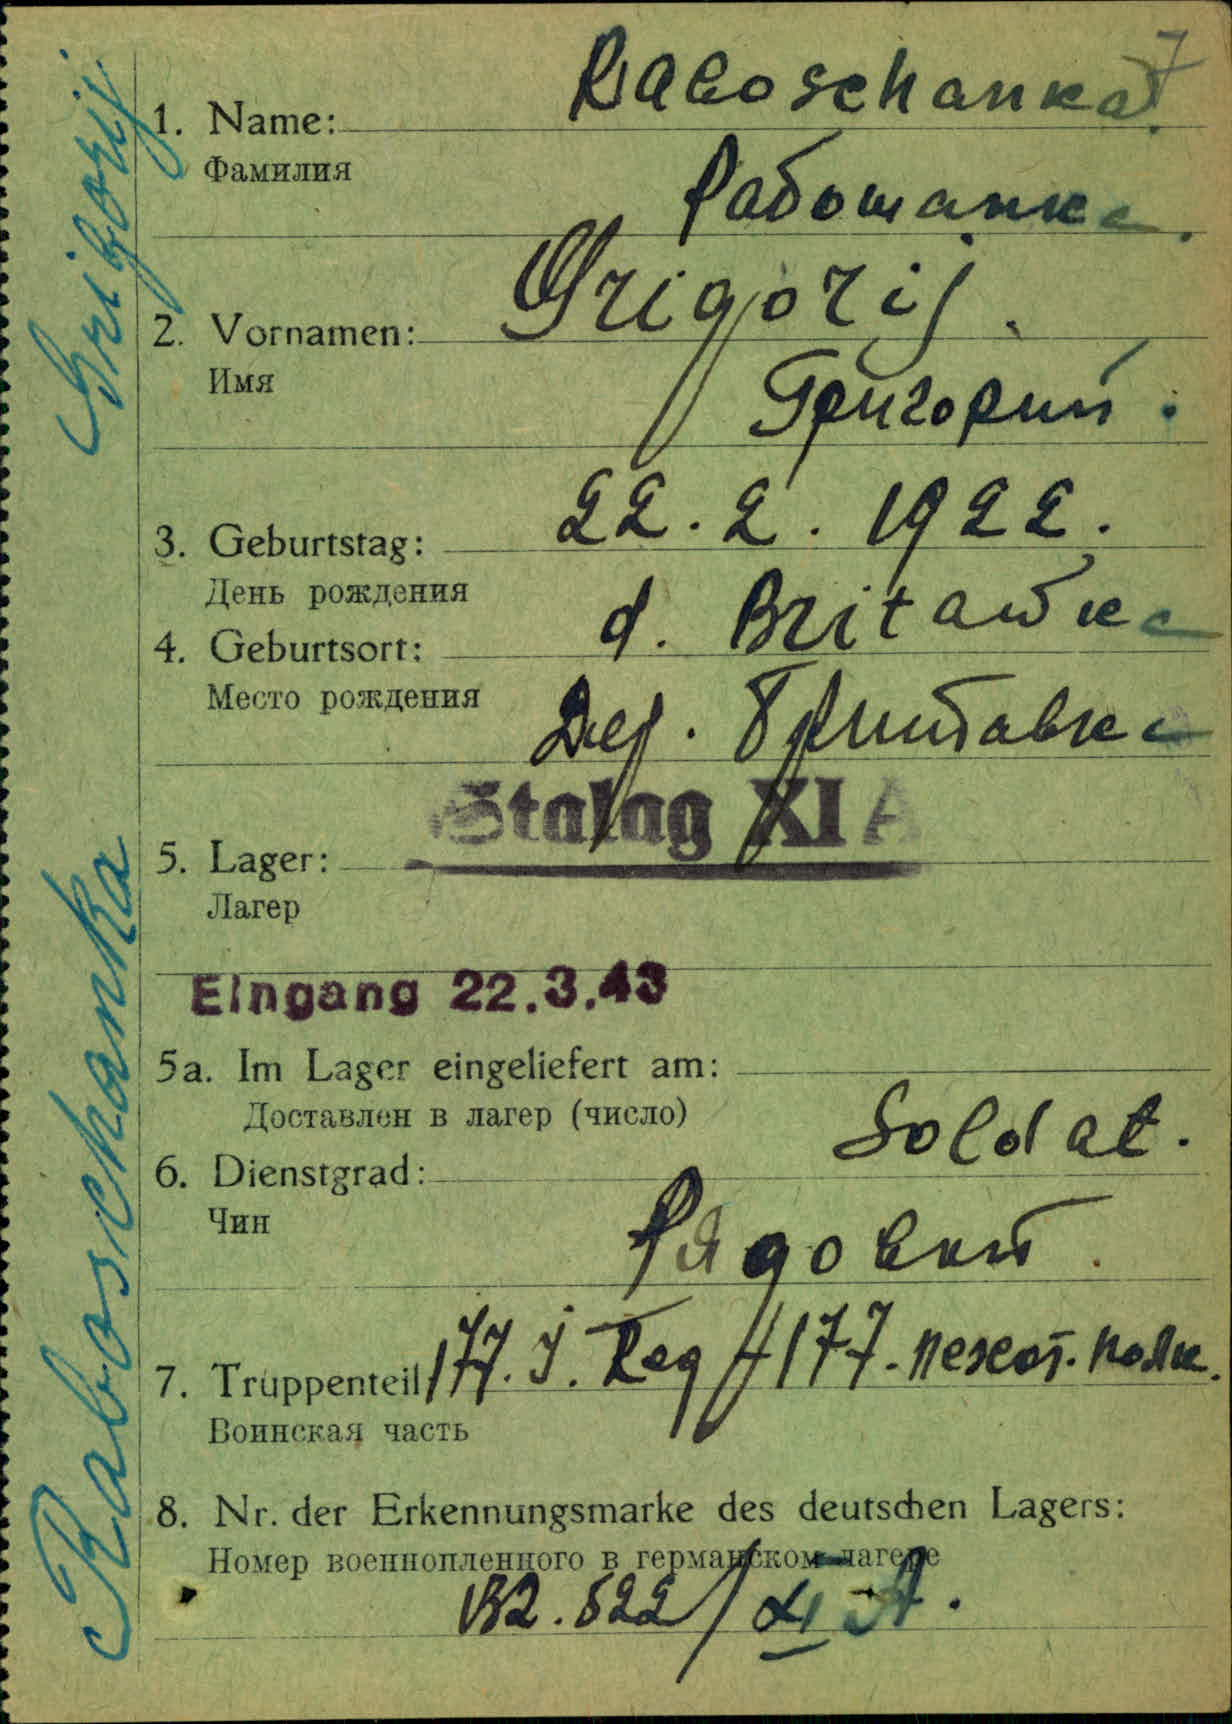 7
1. Name: Raboschanka.
Фамилия
Рабошанка.
2. Vornamen: Grigorij.
Имя
Григорий.
3. Geburtstag: 22. 2. 1922.
День рождения
4. Geburtsort: d. Britawka
Место рождения
Дер. Бритавка
Stalag XI A
5. Lager:
Лагер
Eingang 22.3.43
5a. Im Lager eingeliefert am:
Доставлен в лагер (число)
6. Dienstgrad: Soldat.
Чин
Рядовой.
7. Truppenteil 177. J. Reg / 177. пехот. полк.
Воинская часть
8. Nr. der Erkennungsmarke des deutschen Lagers:
Номер военнопленного в германском лагере
132.522 / XI A.
Raboschanka Grigorij